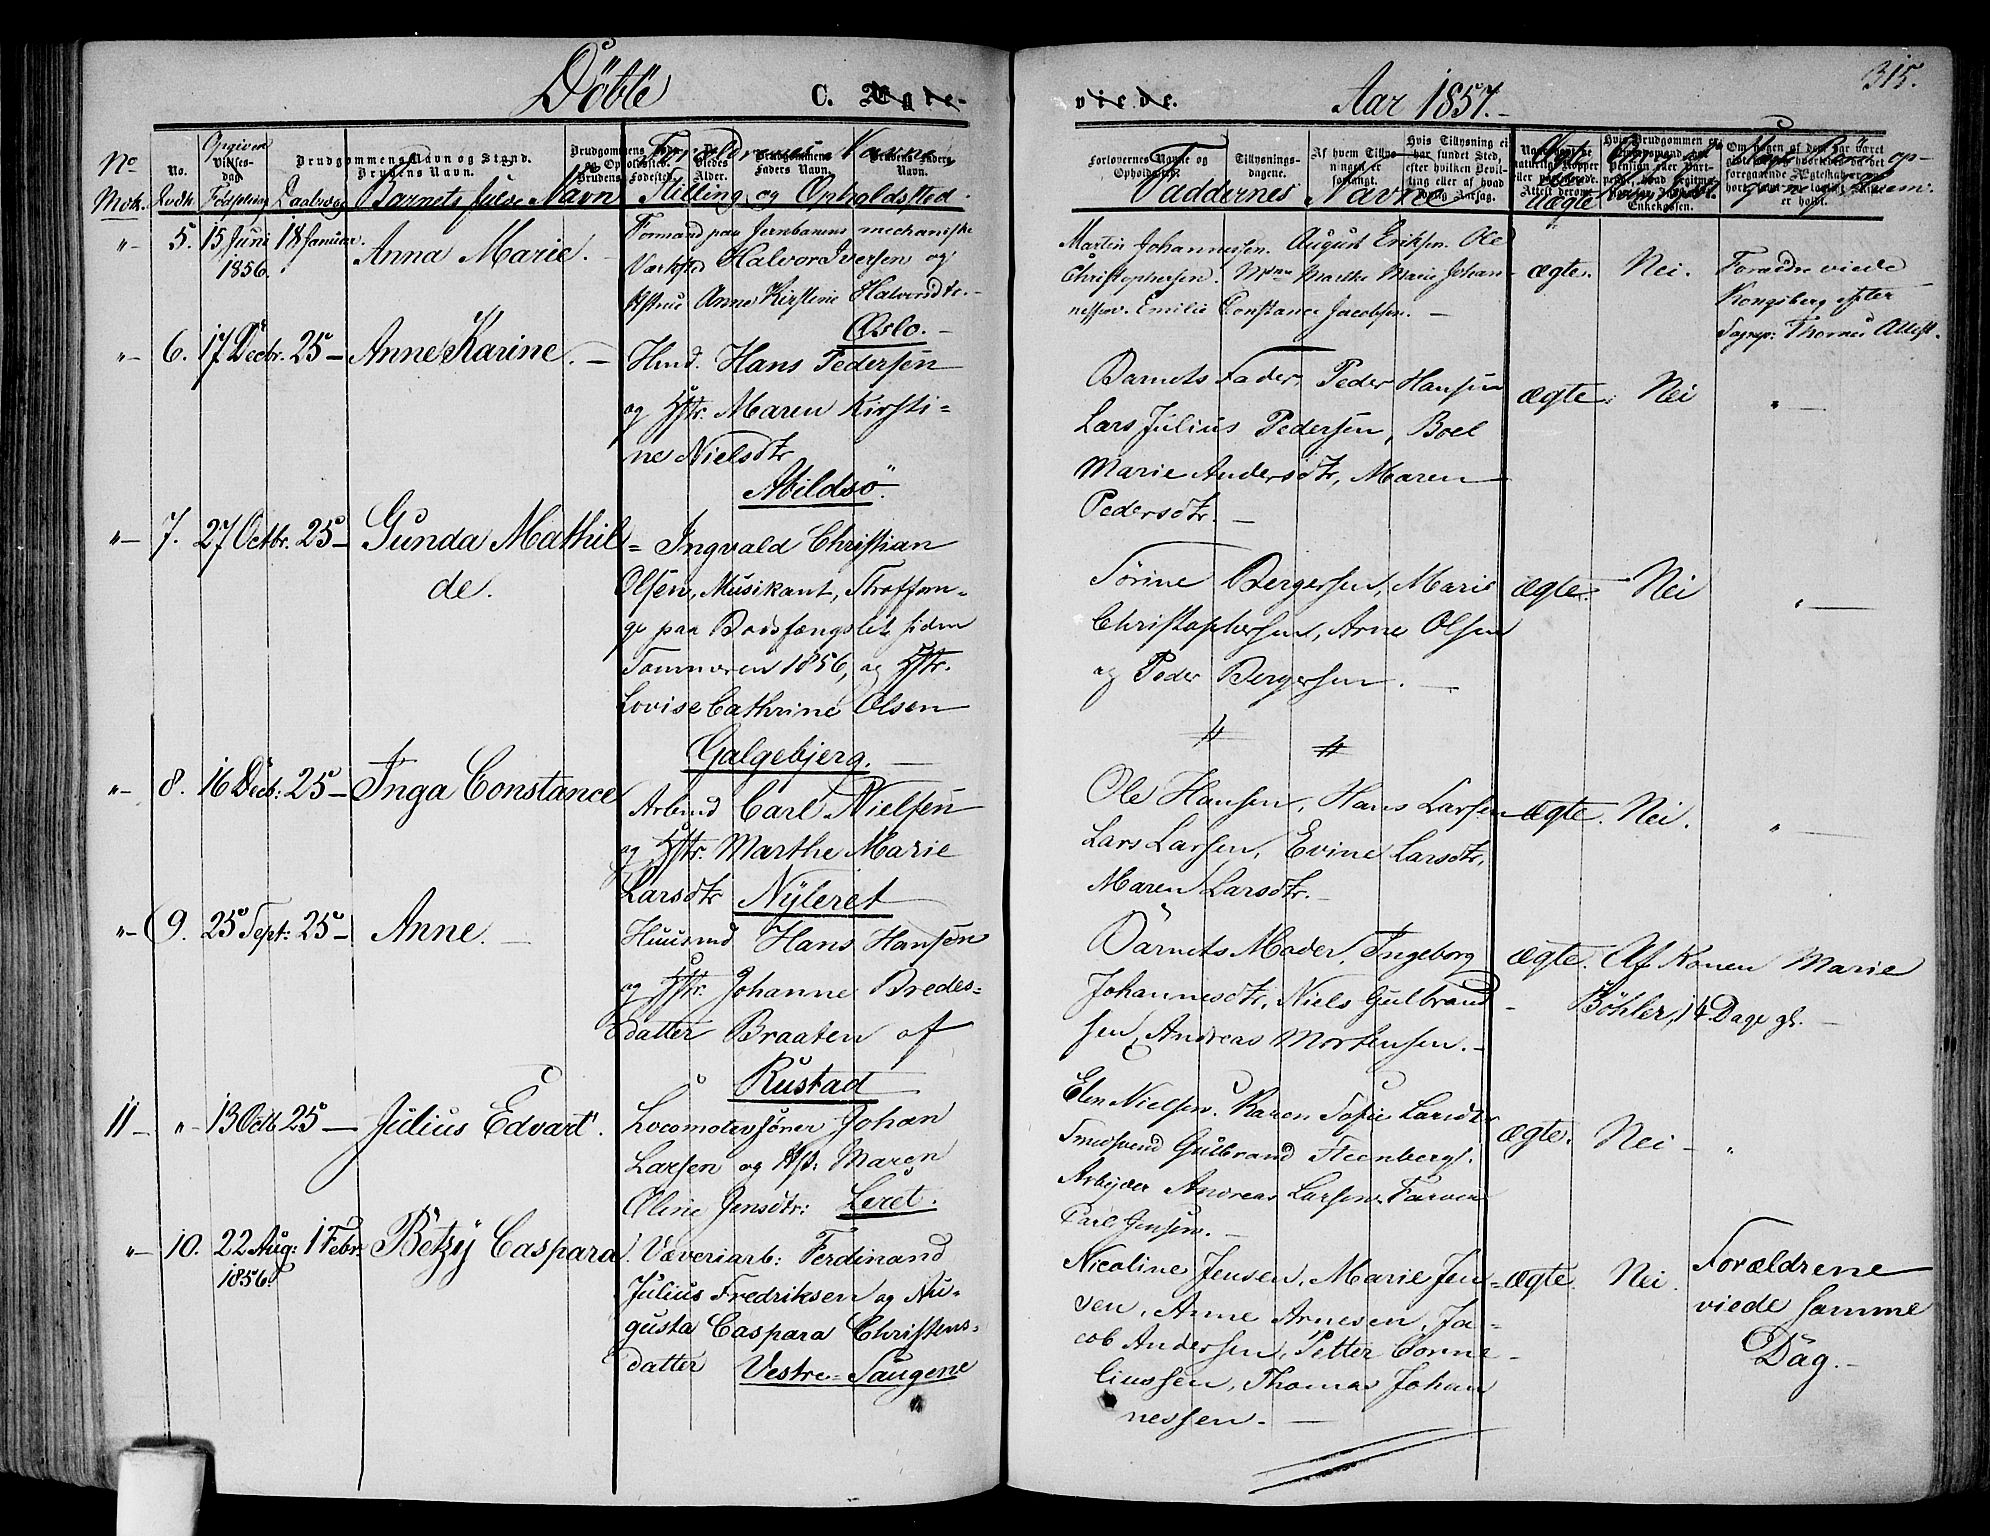 Döbte C. Ægte-
viede. Aar 1857.-
315.
No No. Opgiven Vielses-dag Brudgommens Navn og Stand. Brudens Navn. Forældrenes Navne,
Mdk. Qvdk. Fødselsdag Daabsdag Barnets fulde Navn Stilling og Opholdssted
Faddernes Navne
Ægte eller Uægte
"- 5. 15 Juni 18 Januar. Anna Marie. -
1856.
Formand paa Jernbanens mechaniske
Værksted Halvor Iversen og
Hstrue Anne Kirstine Halvorsdtr. -
Oslo. -
Martin Johannessen. August Eriksen. Ole
Christophersen. Mdme Marthe Marie Johan-
nessen. Emilie Constance Jacobsen. -
ægte. Nei. Forældre viede
Kongsberg efter
Sognepr: Thornes Attest.
"- 6. 17 Decbr. 25- Anne Karine. -
Hmd. Hans Pedersen
og Hstr. Maren Kirsti-
ne Nielsdtr
Abildsö.
Barnets Fader, Peder Hansen
Lars Julius Pedersen, Boel
Marie Andersdtr, Maren
Pedersdtr. -
ægte. Nei "-
"- 7. 27 Octbr. 25- Gunda Mathil-
de.
Ingvald Christian
Olsen, Musikant, Straffan-
ge paa Bodsfængslet siden
Sommeren 1856, og Hstr.
Lovise Cathrine Olsen
Galgebjerg. -
Torine Bergersen, Marie
Christophersen, Arne Olsen
og Peder Bergersen. -
ægte. Nei "-
"- 8. 16 Decb: 25- Inga Constance
Arbmd Carl Nielsen
og Hstr. Marthe Marie
Larsdtr Nyleret
Ole Hansen, Hans Larsen
Lars Larsen, Evine Larsdtr,
Maren Larsdtr. -
ægte. Nei. "-
"- 9. 25 Sept: 25- Anne. -
Huusmd Hans Hansen
og Hstr. Johanne Bredes-
datter Braaten af
Rustad
Barnets Moder, Ingeborg
Johannesdtr, Niels Gulbrand-
sen, Andreas Mortensen. -
ægte. Af Konen Marie
Böhler, 14 Dage gl. -
11 - "- 13 Octb 25- Julius Edvart.
Locomotivförer Johan
Larsen og Hst: Maren
Oline Jensdtr: Leret.
Elen Nielsen. Karen Sofie Larsdtr
Smedsvend Gulbrand Steenberg.
Arbejder Andreas Larsen. Farver
Carl Jensen. -
ægte. Nei - "
"- 10. 22 Aug: 1 Febr. Betzy Caspara.
1856.
Væveriarb: Ferdinand
Julius Fredriksen og Au-
gusta Caspara Christens-
datter Vestre-Saugene
Nicoline Jensen, Marie Jen-
sen, Anne Arnesen, Ja-
cob Andersen, Petter Corne-
liussen, Thomas Johan
nessen. -
ægte. Nei. Forældrene
viede samme
Dag. -